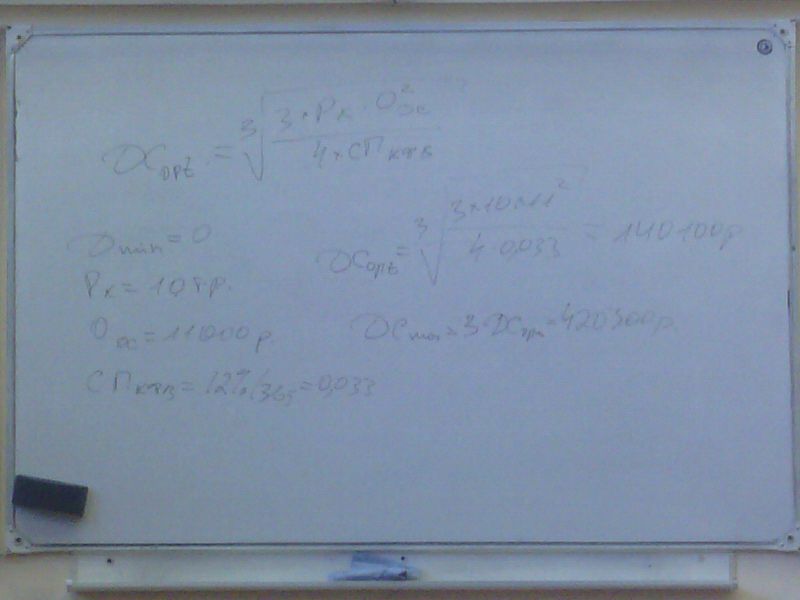 ДС_opt = ∛(3 × Рк · О²ос / 4 × СПкфв)
Dmin = 0
Рк = 10 т.р.
Оос = 11000 р.
СПкфв = 12%/365 = 0,033
ДСopt = ∛(3 × 10 × 11² / 4 · 0,033) = 140100р
ДСmax = 3 · ДСopt = 420300р.